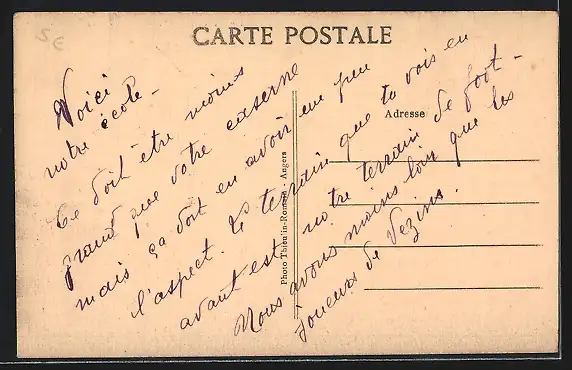 5€
CARTE POSTALE
Adresse
Photo Angers
Voici
notre école -
Ce doit être moins
grand que votre caserne
mais ça doit en avoir un peu
l'aspect. Le terrain que tu vois en
avant est notre terrain de foot -
Nous avons moins loin que les
joueurs de Vezins.